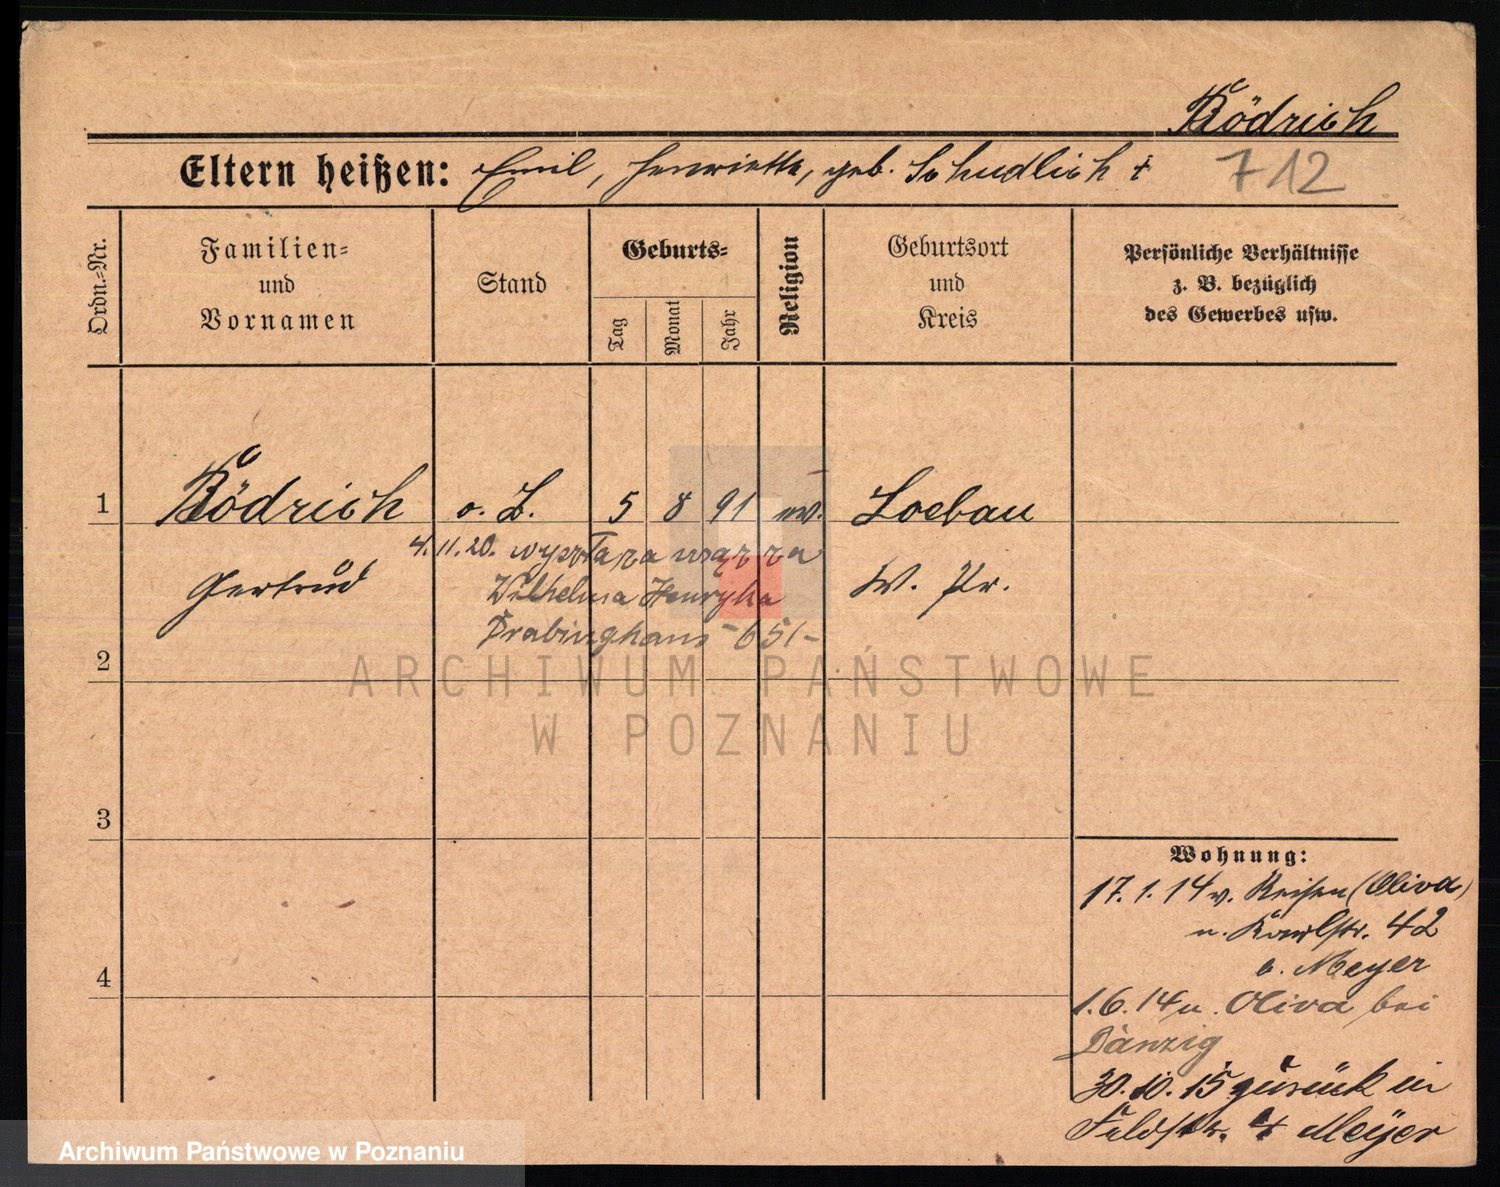 Rödrich
Eltern heißen: Emil, Henriette, geb. Schudlich †
712
Ordn.-Nr.
Familien-
und
Vornamen
Stand
Geburts-
Tag
Monat
Jahr
Religion
Geburtsort
und
Kreis
Persönliche Verhältnisse
z. B. bezüglich
des Gewerbes usw.
1 Rödrich o. B. 5 8 91 ev. Loebau
4.11.20. wyszła za mąż za
Gertrud Wilhelma Henryka W. Pr.
651
2
ARCHIWUM PAŃSTWOWE
W POZNANIU
3
Wohnung:
17.1.14 v. Reisen (Oliva)
n. Karlstr. 42
b. Meyer
4
1.6.14 n. Oliva bei
Danzig
30.10.15 zurück in
Feldstr. 4 Meyer
Archiwum Państwowe w Poznaniu